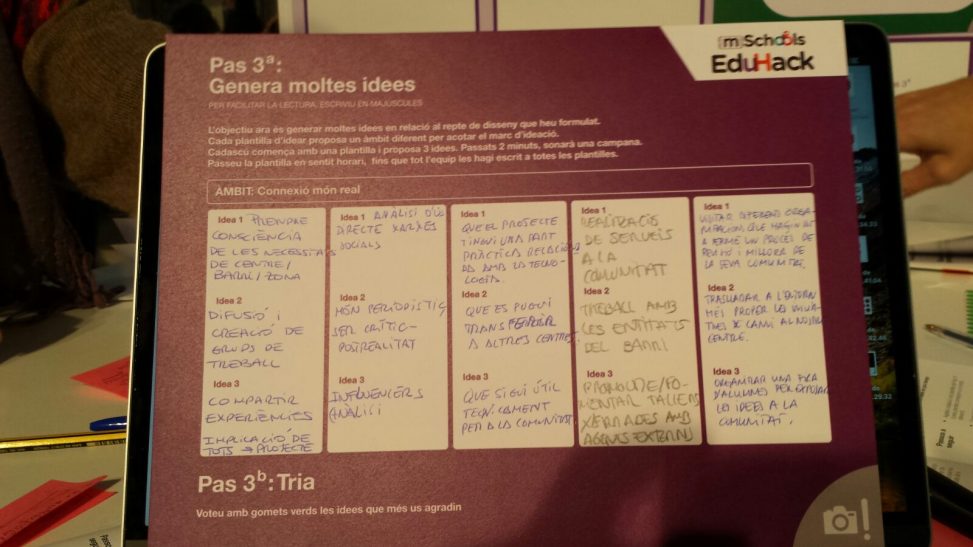 Pas 3ª:
Genera moltes idees
PER FACILITAR LA LECTURA, ESCRIVIU EN MAJÚSCULES
mSchools
EduHack
L'objectiu ara és generar moltes idees en relació al repte de disseny que heu formulat.
Cada plantilla d'idear proposa un àmbit diferent per acotar el marc d'ideació.
Cadascú comença amb una plantilla i proposa 3 idees. Passats 2 minuts, sonarà una campana.
Passeu la plantilla en sentit horari, fins que tot l'equip les hagi escrit a totes les plantilles.
ÀMBIT: Connexió món real
Idea 1 PRENDRE
CONSCIÈNCIA
DE LES NECESSITATS
DE CENTRE/
BARRI/ZONA
Idea 2
DIFUSIÓ I
CREACIÓ DE
GRUPS DE
TREBALL
Idea 3
COMPARTIR
EXPERIÈNCIES
IMPLICACIÓ DE
TOTS → PROJECTE
Idea 1 ANÀLISI D'ÚS
DIRECTE XARXES
SOCIALS
Idea 2
MÓN PERIODÍSTIC,
SER CRÍTIC-
POSTREALITAT
Idea 3
INFLUENCERS
(ANÀLISI
Idea 1
QUE EL PROJECTE
TINGUI UNA PART
PRÀCTICA RELACION
AD AMB LA TECNO-
LOGIA.
Idea 2
QUE ES PUGUI
TRANSFERIR
A ALTRES CENTRES.
Idea 3
QUE SIGUI ÚTIL
TECNICAMENT
PER A LA COMUNITAT
Idea 1
REALITZACIÓ
DE SERVEIS
A LA
COMUNITAT
Idea 2
TREBALL AMB
LES ENTITATS
DEL BARRI
Idea 3
PROMOURE/FO-
MENTAR TALLERS
XERRADES AMB
AGENTS EXTERNS
Idea 1
VISITAR DIFERENTS ORGA-
NITZACIONS QUE HAGIN DUT
A TERME UN PROCÉS DE
I MILLORA DE
LA SEVA COMUNITAT.
Idea 2
TRASLLADAR A L'ENTORN
MÉS PROPER LES
DE CANVI AL NOSTRE
CENTRE.
Idea 3
ORGANITZAR UNA FIRA
D'ALUMNES PER EXPOSAR
LES IDEES A LA
COMUNITAT.
Pas 3ᵇ: Tria
Voteu amb gomets verds les idees que més us agradin